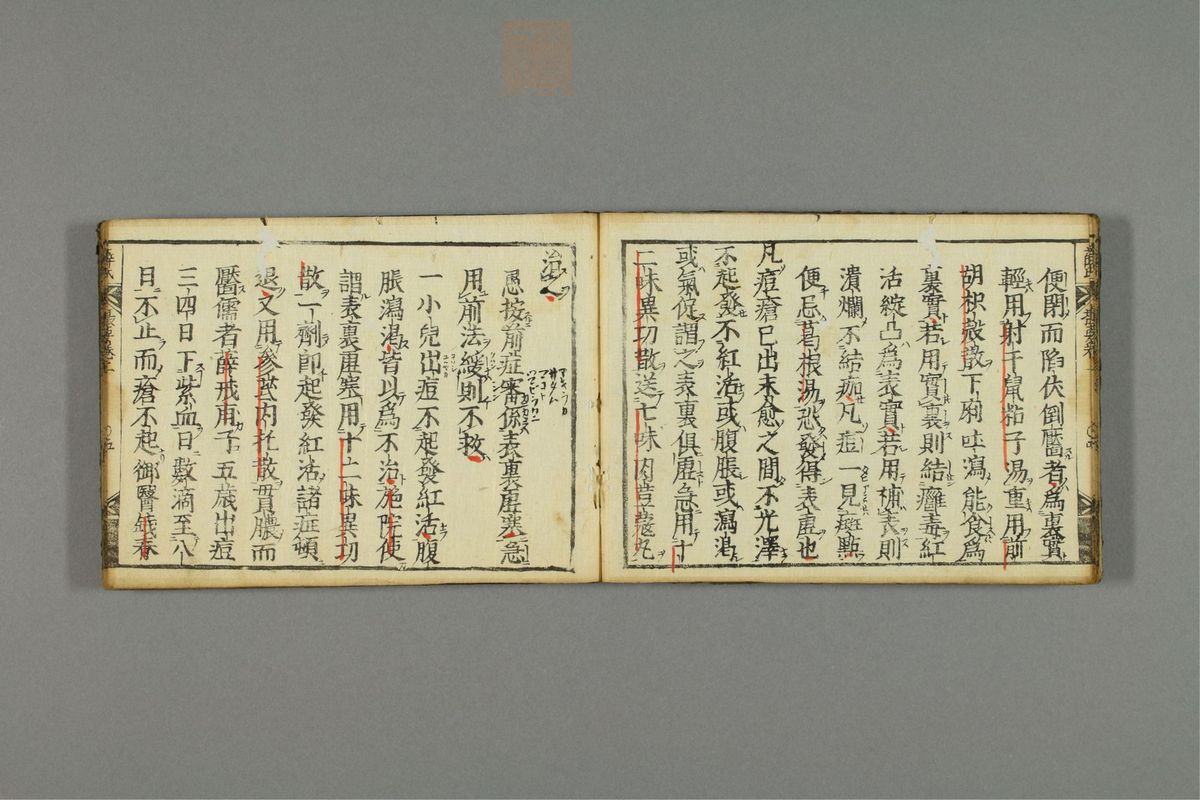 便閉而陷伏倒靨者爲裏實
輕用射干鼠粘子湯重用前
胡枳殼散下痢吐瀉能食爲
裏實若用實裏則結癰毒紅
活綻凸爲表實若用補表則
潰爛不結痂凡痘一見斑點
便忌葛根湯恐發得表虛也
凡痘瘡已出未愈之間不光澤
不起發不紅活或腹脹或瀉渴
或氣促謂之表裏俱虛急用十
二味異功散送七味肉荳蔻丸
治之
愚按前症審係表裏虛寒急
用前法緩則不救
一小兒出痘不起發紅活腹
脹瀉渴皆以爲不治施院使
謂表裏虛寒用十二味異功
散一劑即起發紅活諸症頓
退又用參芪內托散貫膿而
靨儒者薛戒甫子五歲出痘
三四日下紫血日數滴至八
日不止而瘡不起御醫錢春